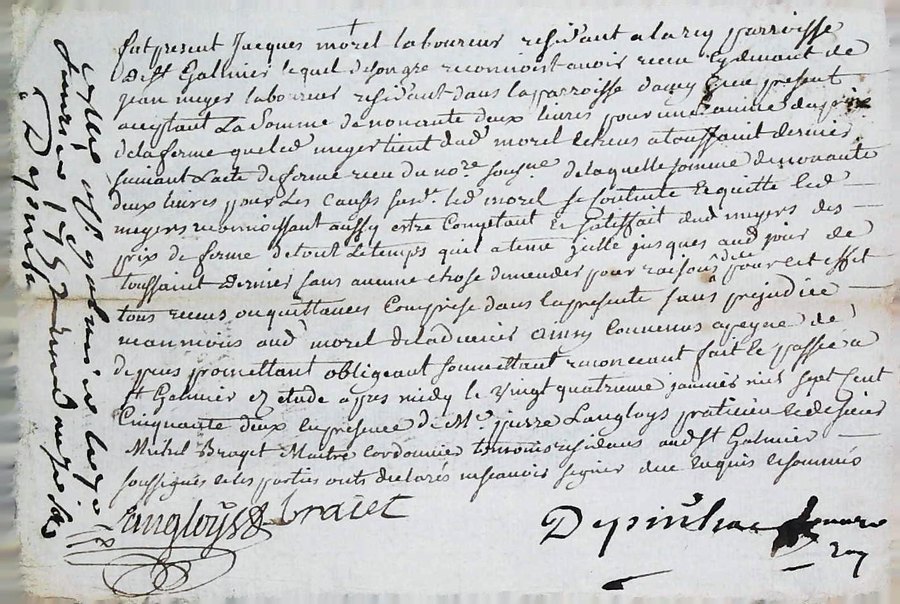 fut present Jacques morel laboureur residant a la parroisse
de st Galmier lequel de son gre reconnoist avoir receu cydevant de
jean meyer laboureur residant dans la parroisse present
acceptant La Somme de nonante deux livres pour une année du prix
de la ferme que led meyer tient dud morel echeus a toussaint dernier
suivant L'acte de ferme receu du nore soussigné de laquelle somme de nonante
deux livres pour Les causes susd. led morel se contente et quitte led
meyer reconnoissant aussy estre Comptant et satisfait dud meyer des
prix de ferme de tout Le temps quil a tenu jusques aud jour de
toussaint Dernier sans aucune chose demender pour raison dice pour cet effet
tous receus ou quittances Comprise dans la presente sans prejudice
neanmoins aud morel de ladernier Ainsy Convenus a peyne de
depens promettant obligeant soumettant renonceant fait et passé a
st Galmier et etude apres midy le vingt quatrieme janvier mil sept cent
Cinquante deux en presence de Me. pierre Langloys praticien et de sieur
Michel Brayet Maitre Cordonnier temoins residens aud st Galmier
soussignés et les parties onts declarés ne scavoir signer de ce enquis et sommés
Langloys braiet
Depinhac
roy
st galmier le
janvier 1752